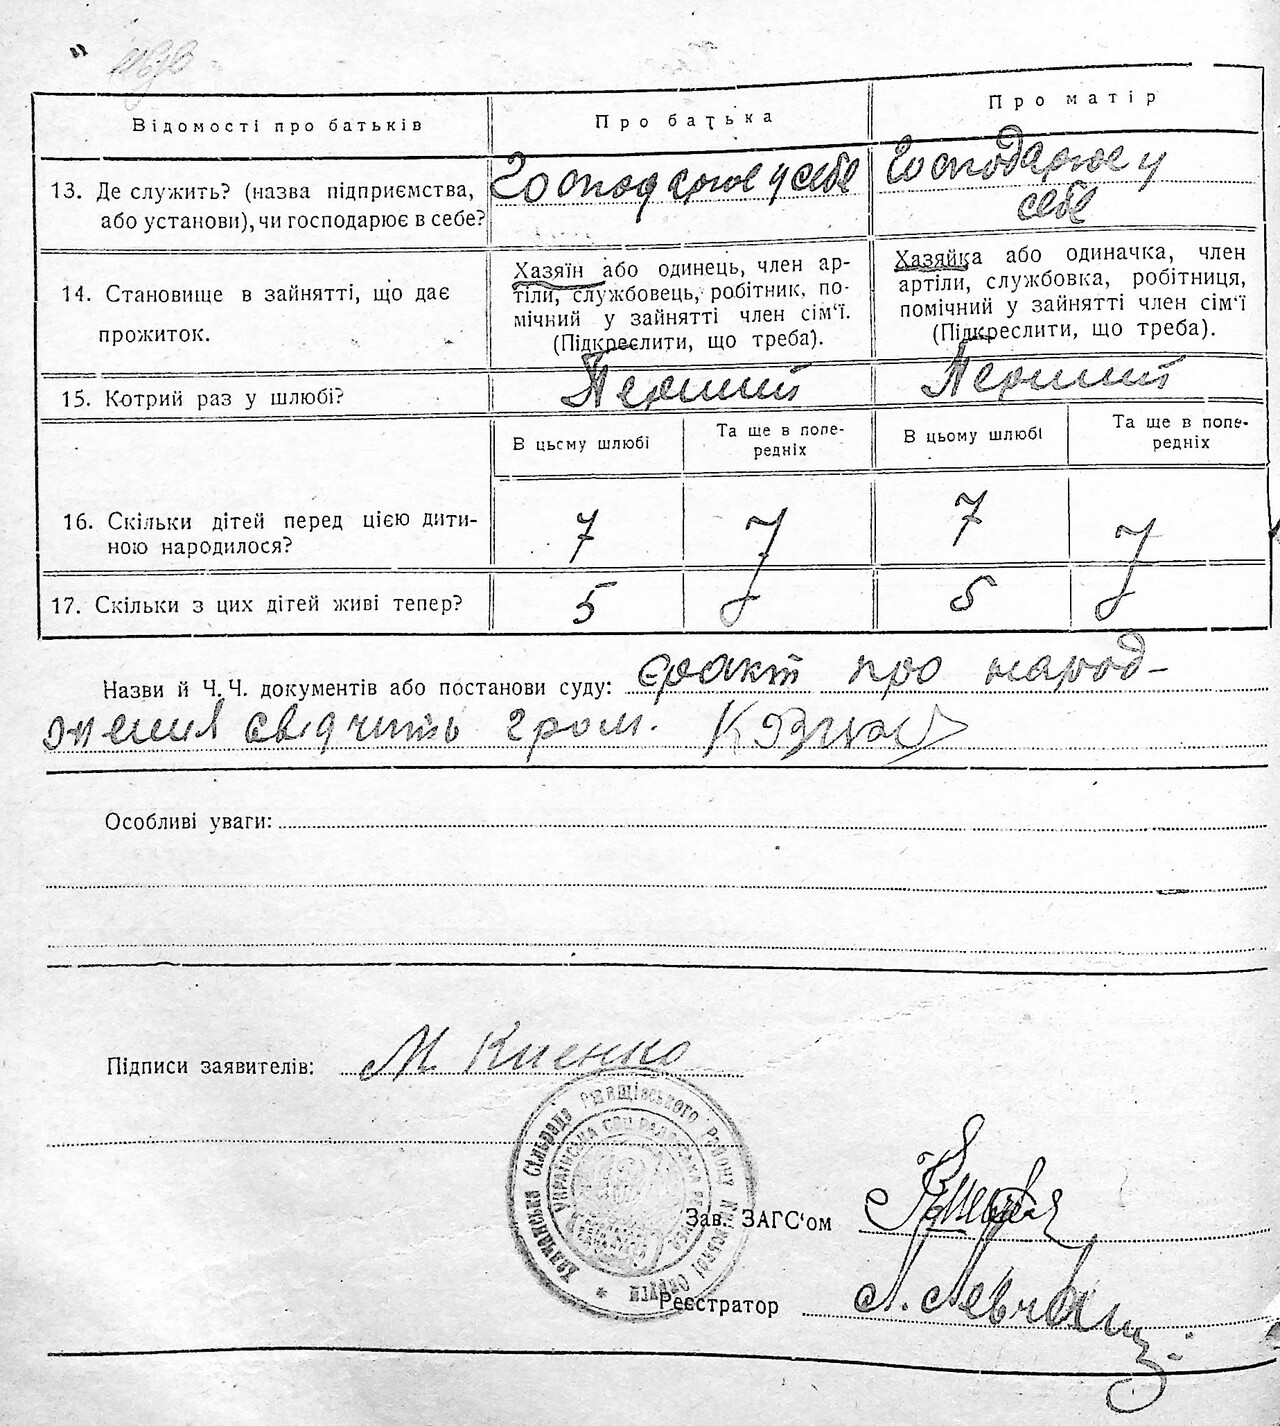 Відомості про батьків
Про батька
Про матір
13. Де служить? (назва підприємства, або установи), чи господарює в себе?
Господарює у себе
Господарює у
себе
14. Становище в зайнятті, що дає
прожиток.
Хазяїн або одинець, член ар-
тіли, службовець, робітник, по-
мічний у зайнятті член сім'ї.
(Підкреслити, що треба).
Хазяйка або одиначка, член
артіли, службовка, робітниця,
помічний у зайнятті член сім'ї
(Підкреслити, що треба).
15. Котрий раз у шлюбі?
Перший
Перший
В цьому шлюбі
Та ще в попе-
редніх
В цьому шлюбі
Та ще в попе-
редніх
16. Скільки дітей перед цією дити-
ною народилося?
7
7
17. Скільки з цих дітей живі тепер?
5
5
Назви й Ч.Ч. документів або постанови суду: факт про народ-
ження свідчить гром.
Особливі уваги:
Підписи заявителів: М Киенко
Сільрада Ржищівського Району Київської Округи
УКРАЇНСЬКА СОЦ РАДЯНСЬКА
Зав. ЗАГС'ом
Реєстратор